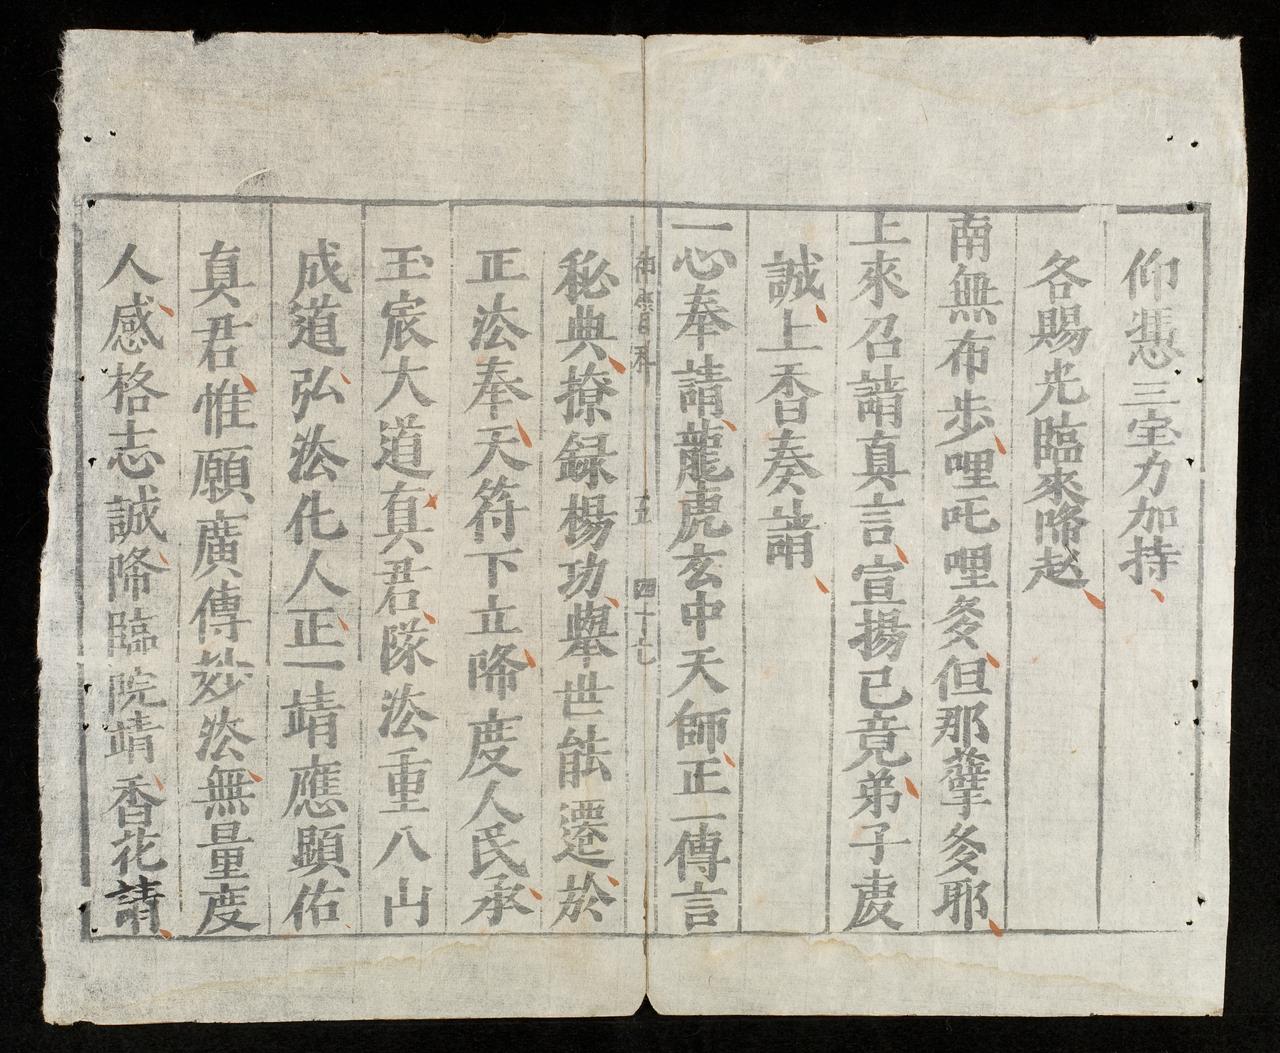 仰憑三宝力加持
各賜光臨來降赴
南無布步哩吒哩多但那蘖多耶
上來召請真言宣揚已竟弟子虔
誠上香奏請
一心奉請龍虎玄中天師正一傳言
五 四十七
秘典撩録楊功舉世能遷於
正法奉天符下立降度人民承
玉宸大道真君隊法重八山
成道弘法化人正一靖應顯佑
真君惟願廣傳妙法無量度
人感格志誠降臨院靖香花請